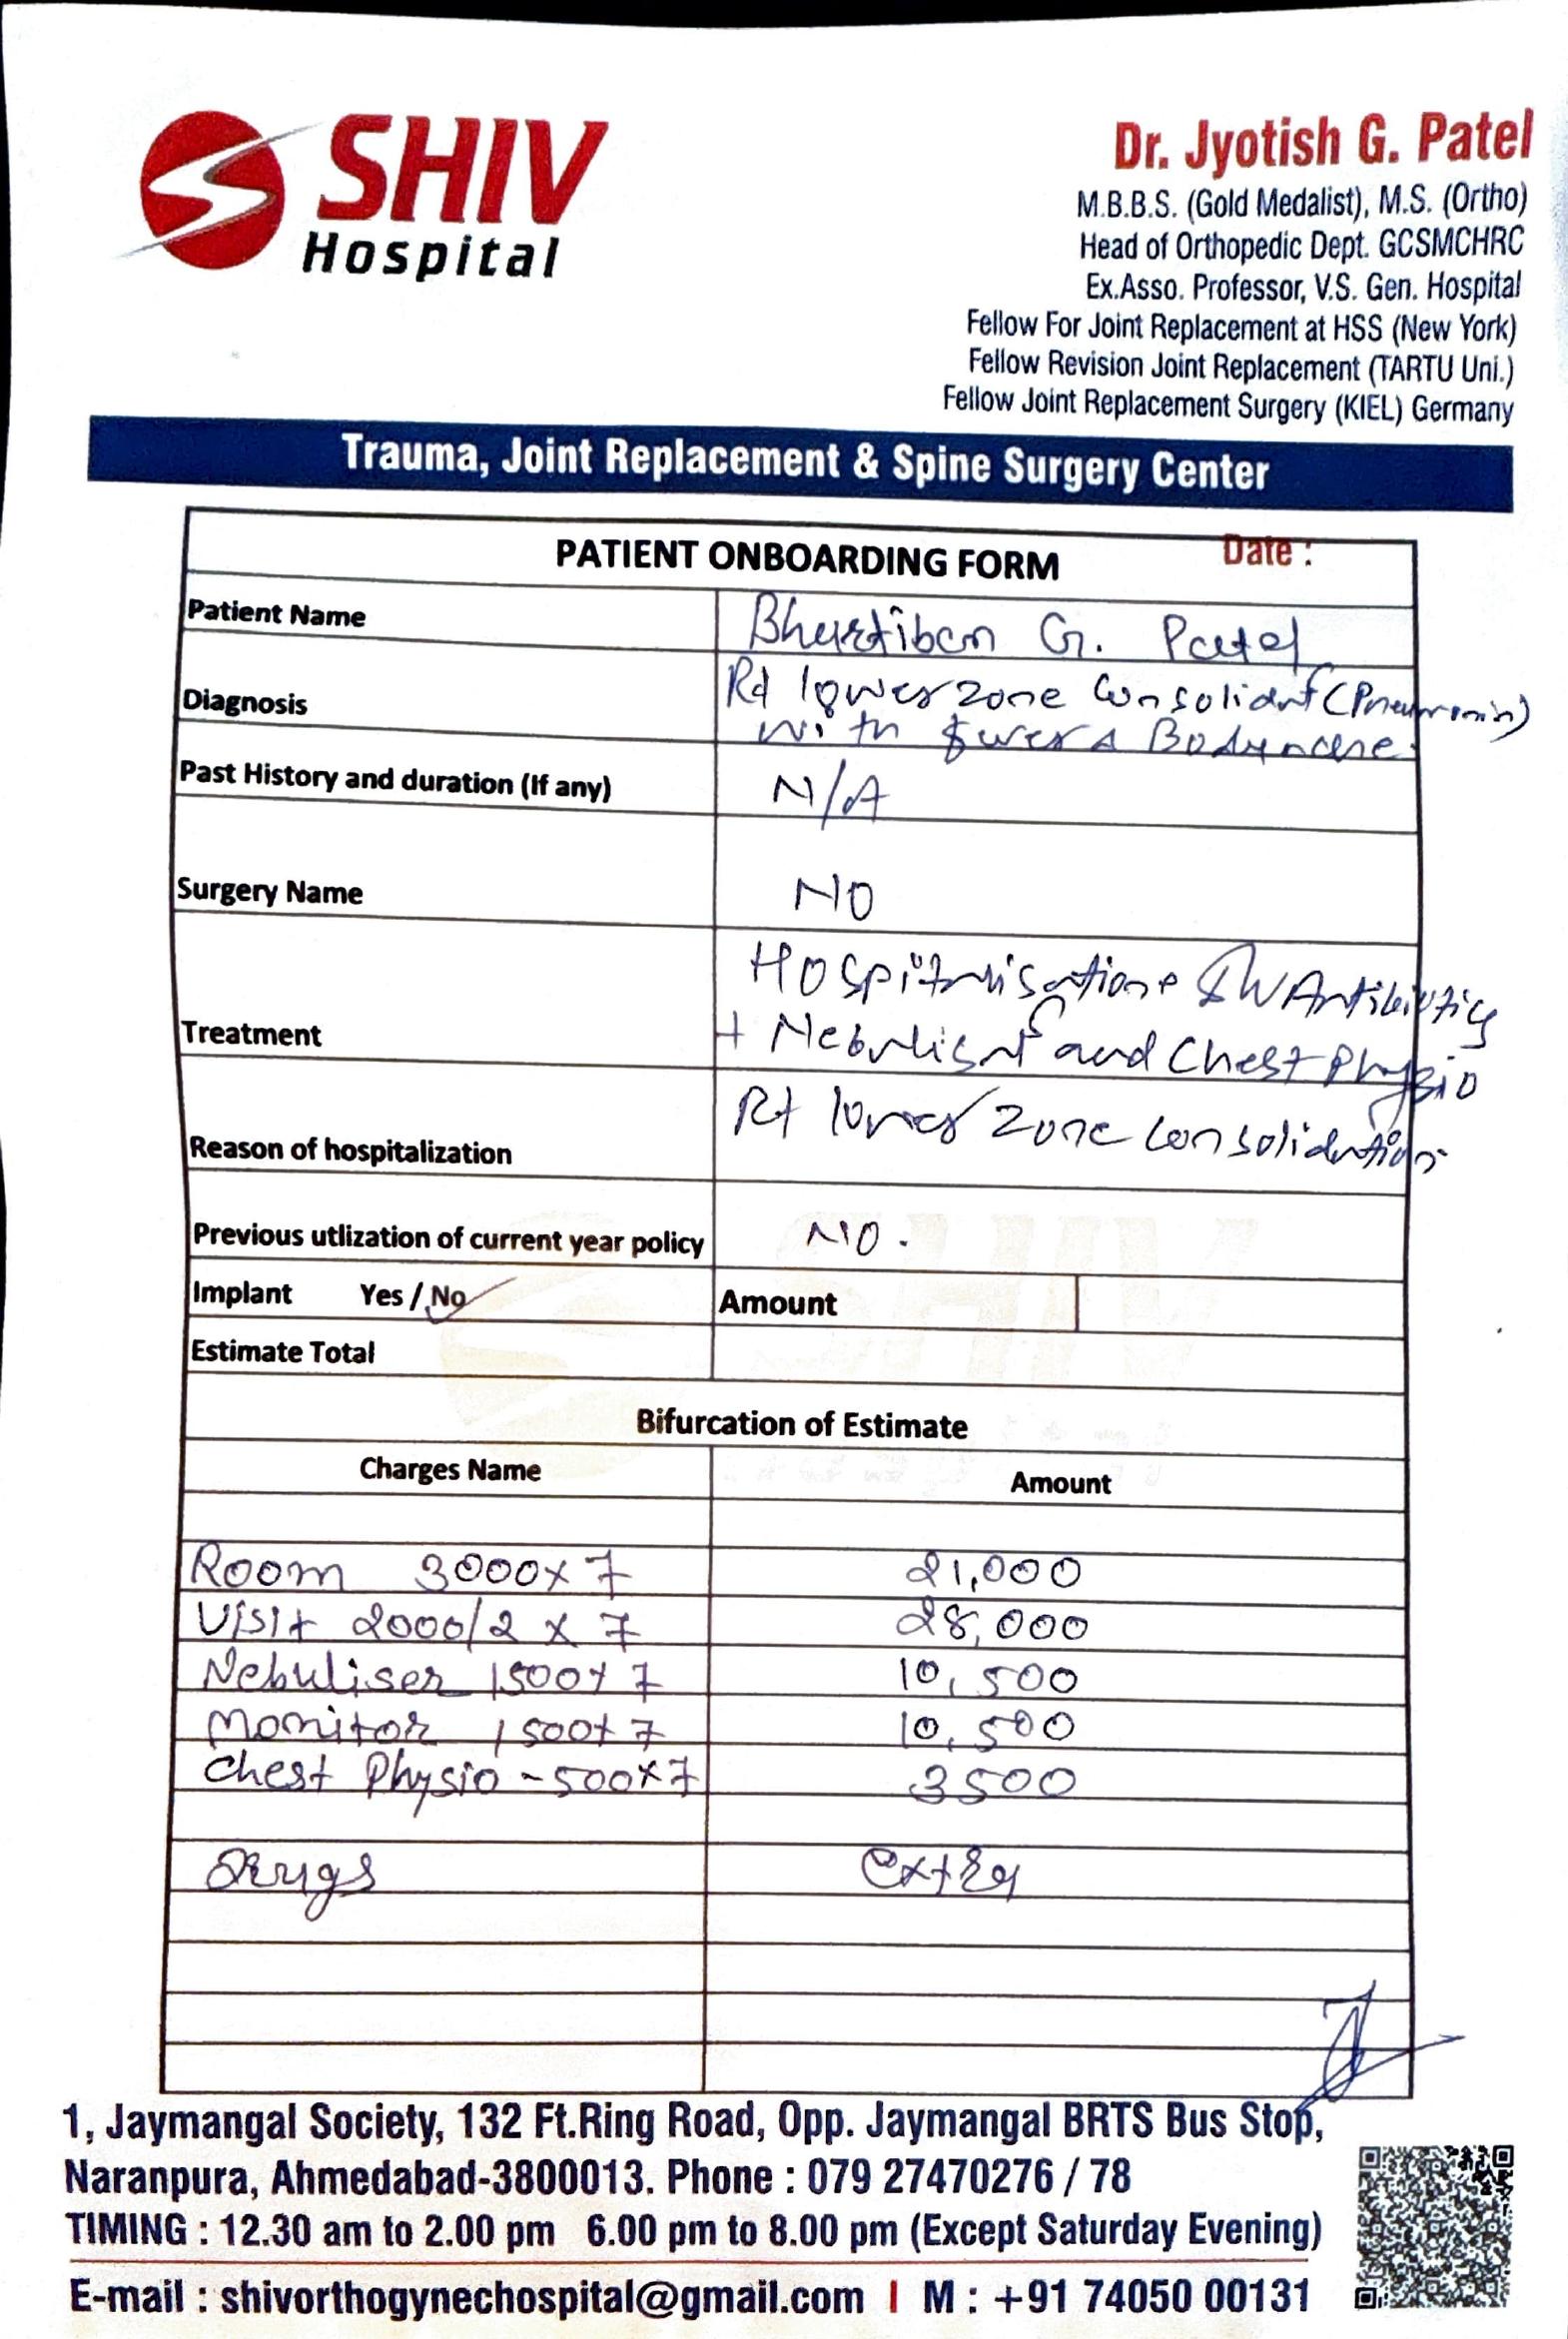 SHIV
Hospital
Dr. Jyotish G. Patel
M.B.B.S. (Gold Medalist), M.S. (Ortho)
Head of Orthopedic Dept. GCSMCHRC
Ex.Asso. Professor, V.S. Gen. Hospital
Fellow For Joint Replacement at HSS (New York)
Fellow Revision Joint Replacement (TARTU Uni.)
Fellow Joint Replacement Surgery (KIEL) Germany
Trauma, Joint Replacement & Spine Surgery Center
PATIENT ONBOARDING FORM Date :
Patient Name Bhartiben G. Patel
Diagnosis Rt lower zone Consolidat (Pneumonia)
with
Past History and duration (If any) N/A
Surgery Name NO
Treatment Hospitalisation IV Antibiotics
+ Nebulisat and Chest Physio
Reason of hospitalization Rt lower zone consolidation
Previous utlization of current year policy NO.
Implant Yes / No Amount
Estimate Total
Bifurcation of Estimate
Charges Name Amount
Room 3000x7 21,000
Visit 2000/2 x 7 28,000
Nebuliser 1500x7 10,500
Monitor 1500x7 10,500
Chest Physio - 500x7 3500
Drugs extra
1, Jaymangal Society, 132 Ft.Ring Road, Opp. Jaymangal BRTS Bus Stop,
Naranpura, Ahmedabad-3800013. Phone : 079 27470276 / 78
TIMING : 12.30 am to 2.00 pm 6.00 pm to 8.00 pm (Except Saturday Evening)
E-mail : shivorthogynechospital@gmail.com | M : +91 74050 00131